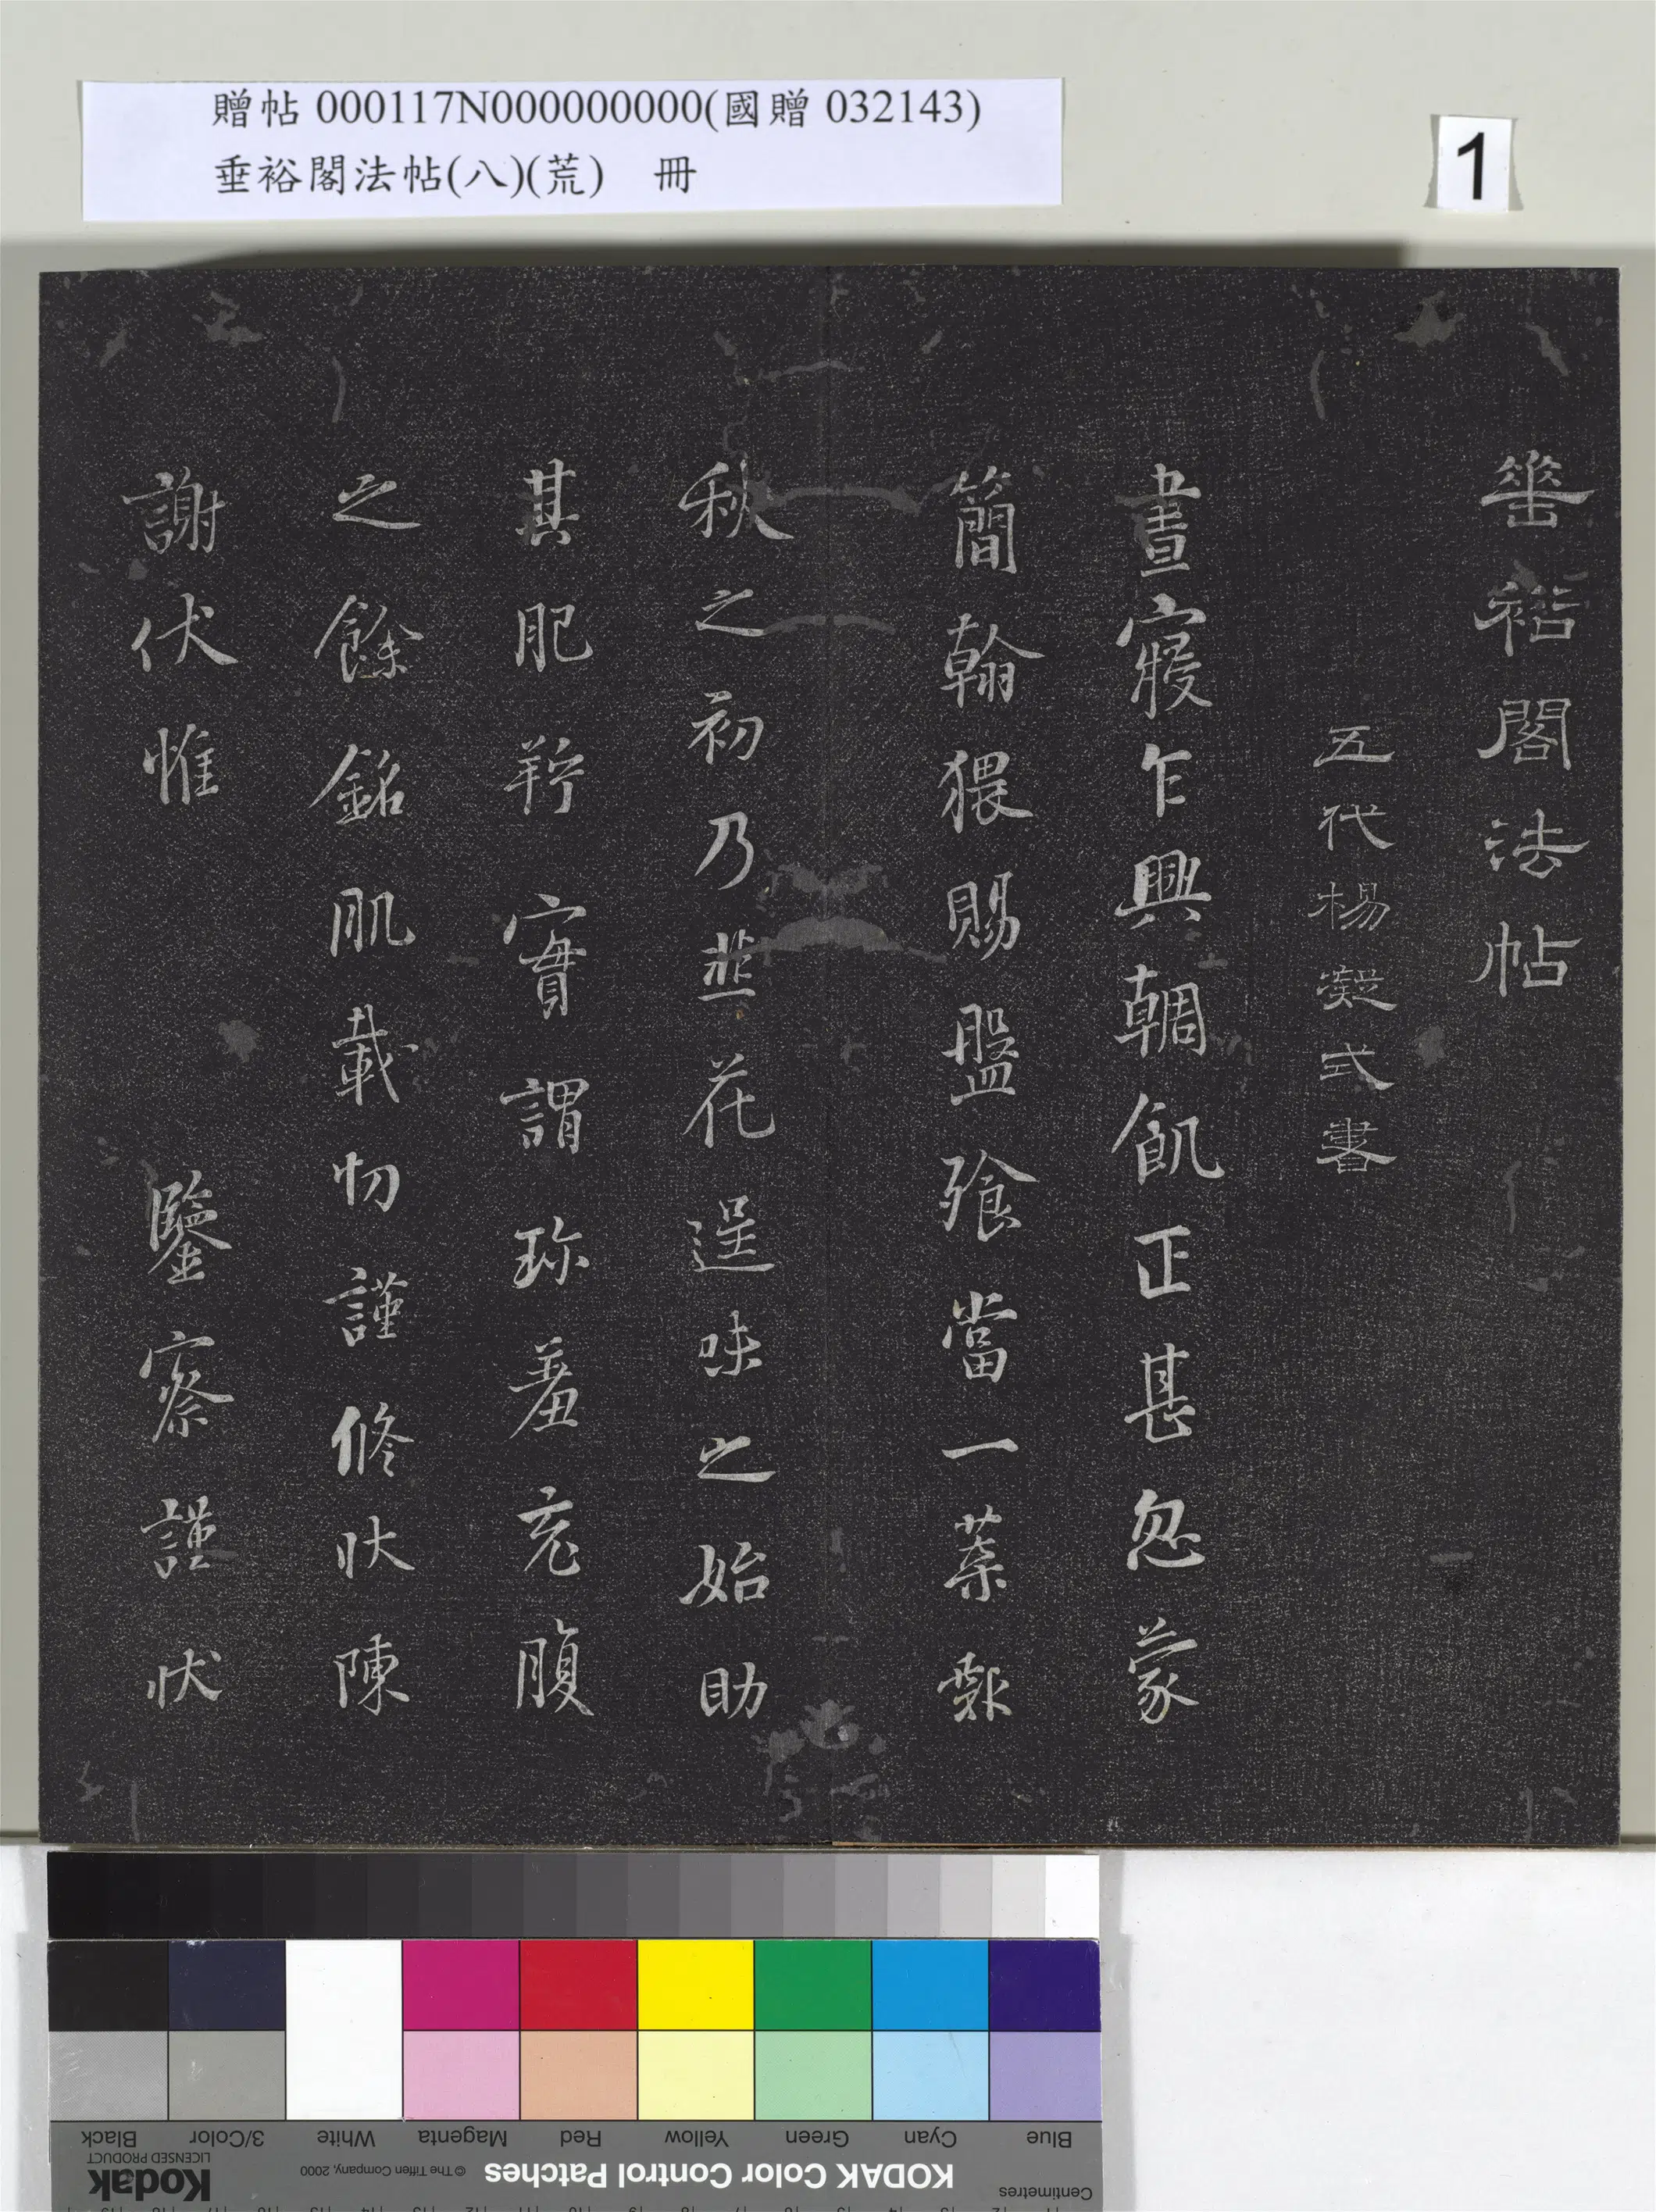 贈帖 000117N000000000(國贈 032143)
垂裕閣法帖(八)(荒) 冊
1
垂裕閣法帖
五代楊凝式書
晝寢乍興輖飢正甚忽蒙
簡翰猥賜盤飱當一葉報
秋之初乃韭花逞味之始助
其肥羜實謂珍羞充腹
之餘銘肌載切謹修狀陳
謝伏惟 鑒察謹狀
Blue Cyan Green Yellow Red Magenta White 3/Color Black
KODAK Color Control Patches © The Tiffen Company, 2000 Kodak
LICENSED PRODUCT
Centimetres